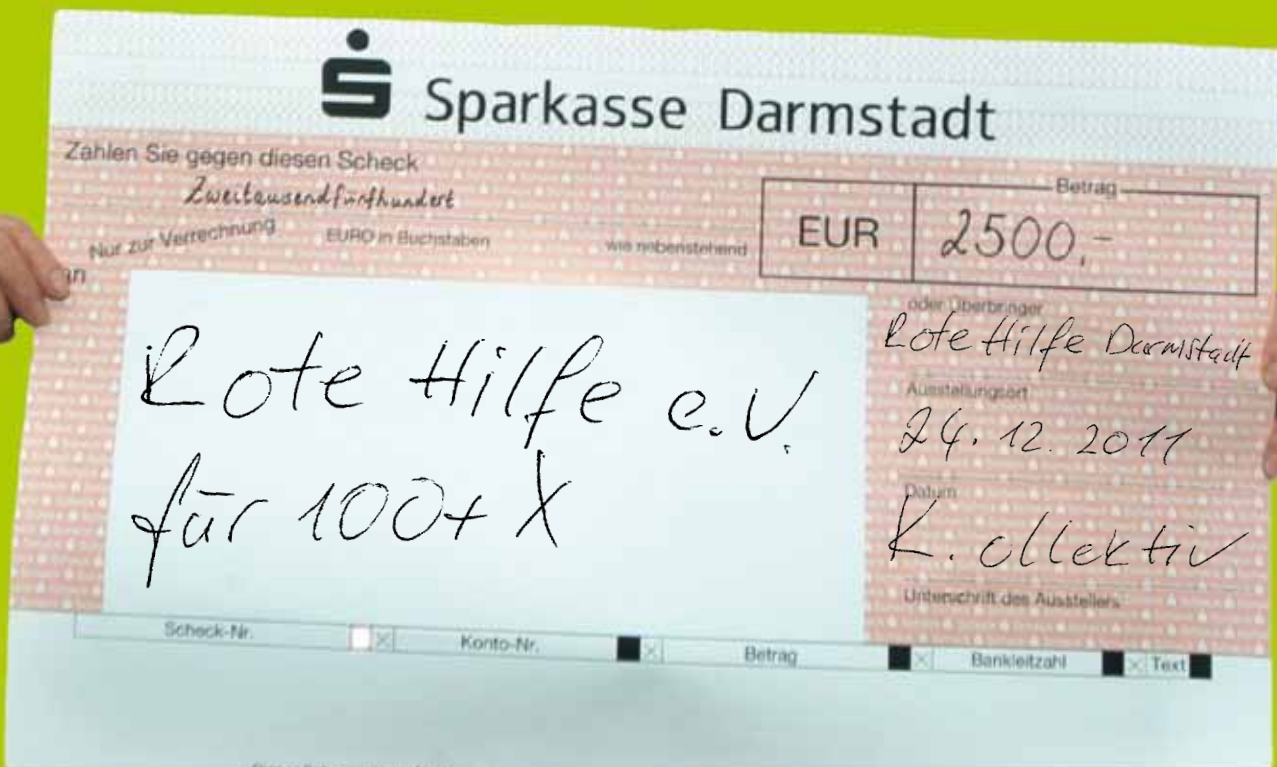 Sparkasse Darmstadt
Zahlen Sie gegen diesen Scheck
Zweitausendfünfhundert
Nur zur Verrechnung EURO in Buchstaben wie nebenstehend
Betrag
EUR 2500,-
an
Rote Hilfe e.V.
für 100+ X
oder Überbringer
Rote Hilfe Darmstadt
Ausstellungsort
24. 12. 2011
Datum
K. ollektiv
Unterschrift des Ausstellers
Scheck-Nr. Konto-Nr. Betrag Bankleitzahl Text